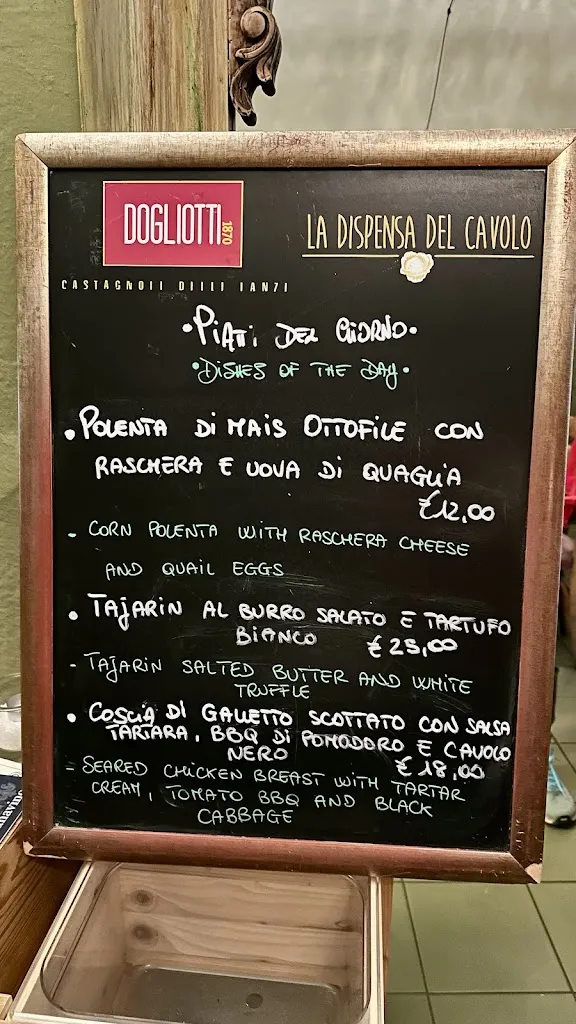 DOGLIOTTI 1870
LA DISPENSA DEL CAVOLO
•PIATTI DEL GIORNO•
•DISHES OF THE DAY•
• POLENTA DI MAIS OTTOFILE CON
RASCHERA E UOVA DI QUAGLIA
€12,00
- CORN POLENTA WITH RASCHERA CHEESE
AND QUAIL EGGS
• TAJARIN AL BURRO SALATO E TARTUFO
BIANCO €25,00
- TAJARIN SALTED BUTTER AND WHITE
TRUFFLE
• COSCIA DI GALLETTO SCOTTATO CON SALSA
TARTARA, BBQ DI POMODORO E CAVOLO
NERO €18,00
- SEARED CHICKEN BREAST WITH TARTAR
CREAM, TOMATO BBQ AND BLACK
CABBAGE